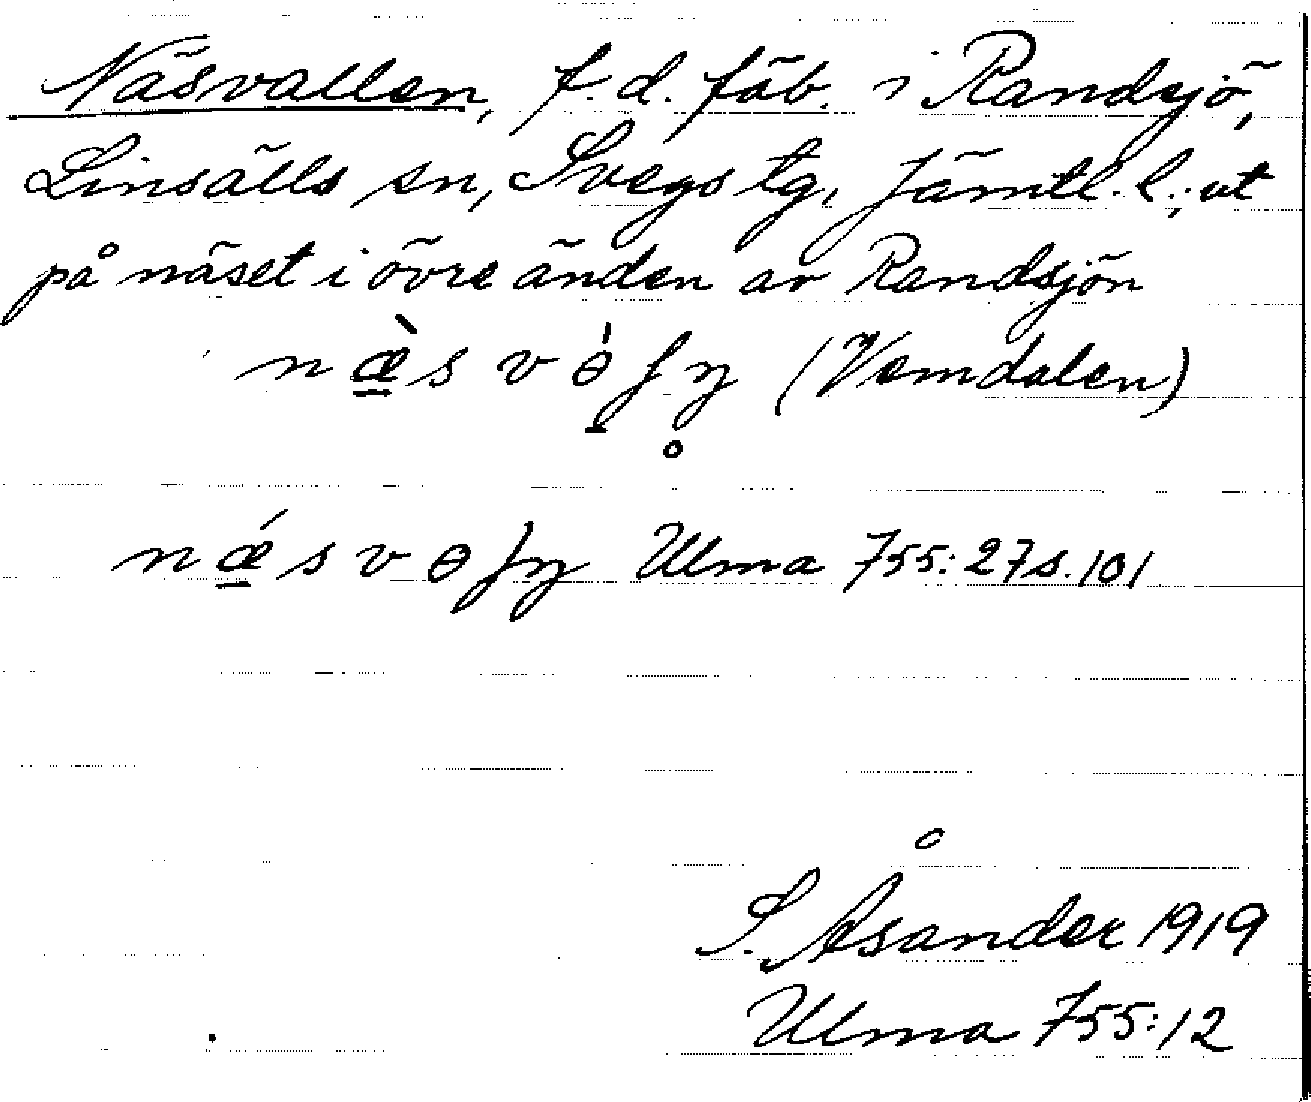 Näsvallen, f.d. fäb. i Randsjö,
Linsälls sn, Svegs tg, Jämtl. l.; ut
på näset i övre änden av Randsjön
(Vemdalen)
Ulma 755:27 s. 101
S. Åsander 1919
Ulma 755:12